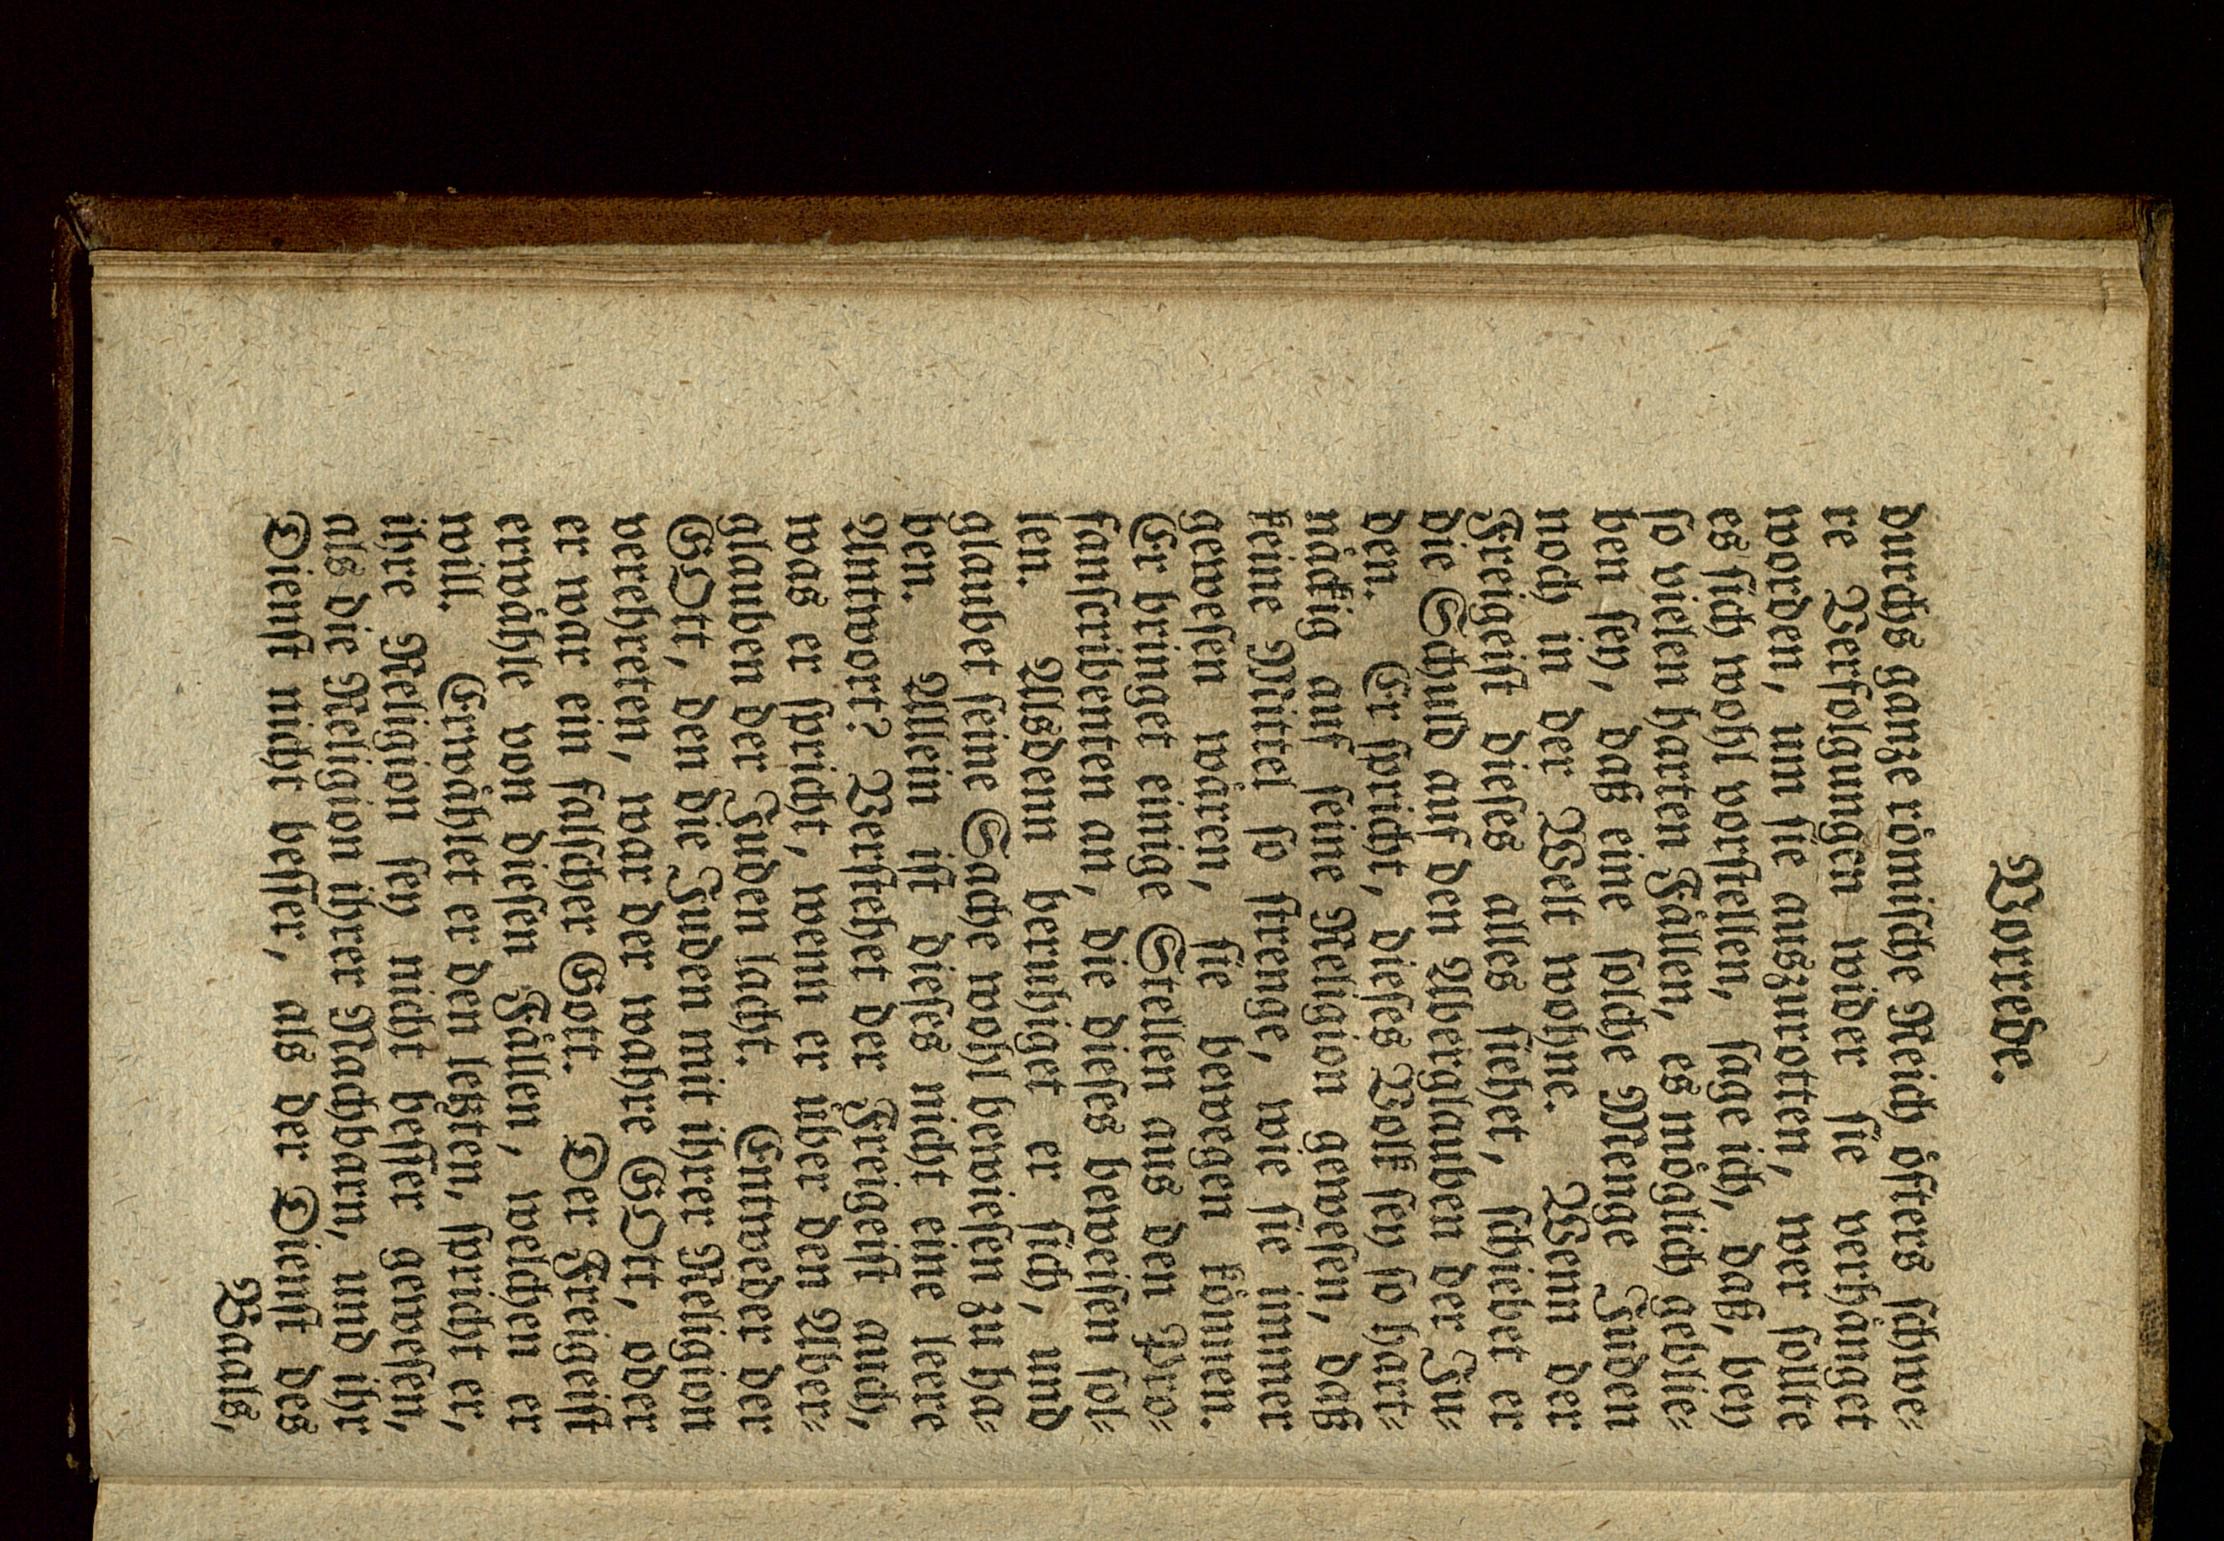 Vorrede.
durchs ganze römische Reich öfters schwe-
re Verfolgungen wider sie verhänget
worden, um sie auszurotten, wer sollte
es sich wohl vorstellen, sage ich, daß, bey
so vielen harten Fällen, es möglich geblie-
ben sey, daß eine solche Menge Juden
noch in der Welt wohne. Wenn der
Freigeist dieses alles siehet, schiebet er
die Schuld auf den Aberglauben der Ju-
den. Er spricht, dieses Volk sey so hart-
näckig auf seine Religion gewesen, daß
keine Mittel so strenge, wie sie immer
gewesen wären, sie bewegen können.
Er bringet einige Stellen aus den Pro-
fanscribenten an, die dieses beweisen sol-
len. Alsdenn beruhiget er sich, und
glaubet seine Sache wohl bewiesen zu ha-
ben. Allein ist dieses nicht eine leere
Antwort? Verstehet der Freigeist auch,
was er spricht, wenn er über den Aber-
glauben der Juden lacht. Entweder der
GOtt, den die Juden mit ihrer Religion
verehreten, war der wahre GOtt, oder
er war ein falscher Gott. Der Freigeist
erwähle von diesen Fällen, welchen er
will. Erwählet er den letzten, spricht er,
ihre Religion sey nicht besser gewesen,
als die Religion ihrer Nachbarn, und ihr
Dienst nicht besser, als der Dienst des
Baals,